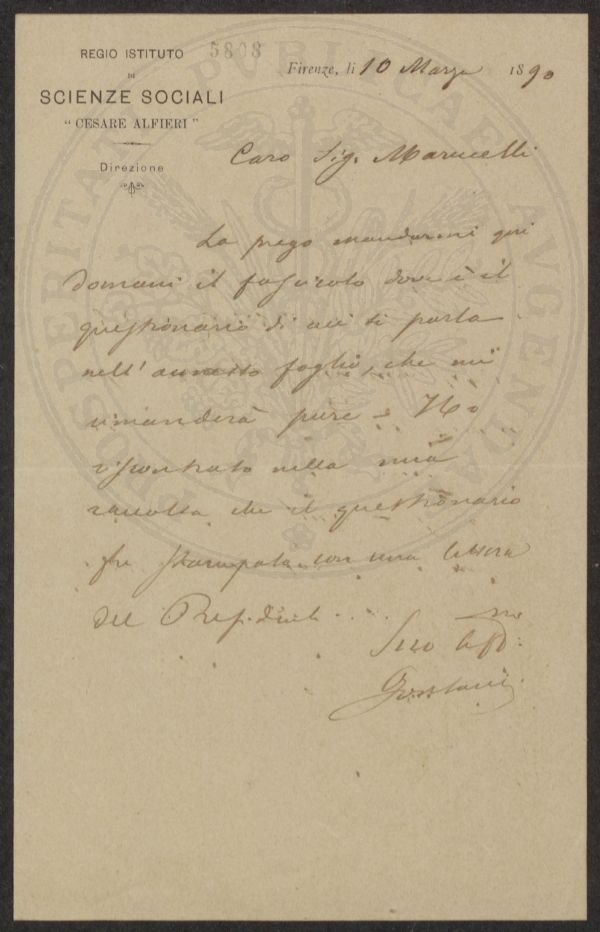 REGIO ISTITUTO
DI
SCIENZE SOCIALI
" CESARE ALFIERI "
Direzione
5808
Firenze, li 10 Marzo 1890
Caro Sig. Marucelli
La prego mandarmi qui
domani il fascicolo dove è il
questionario di cui si parla
nell'annesso foglio, che mi
rimanderà pure. Ho
riscontrato nella mia
raccolta che il questionario
fu stampato con una lettera
del Presidente
Suo
PROSPERITATI PVBLICAE AVGENDAE